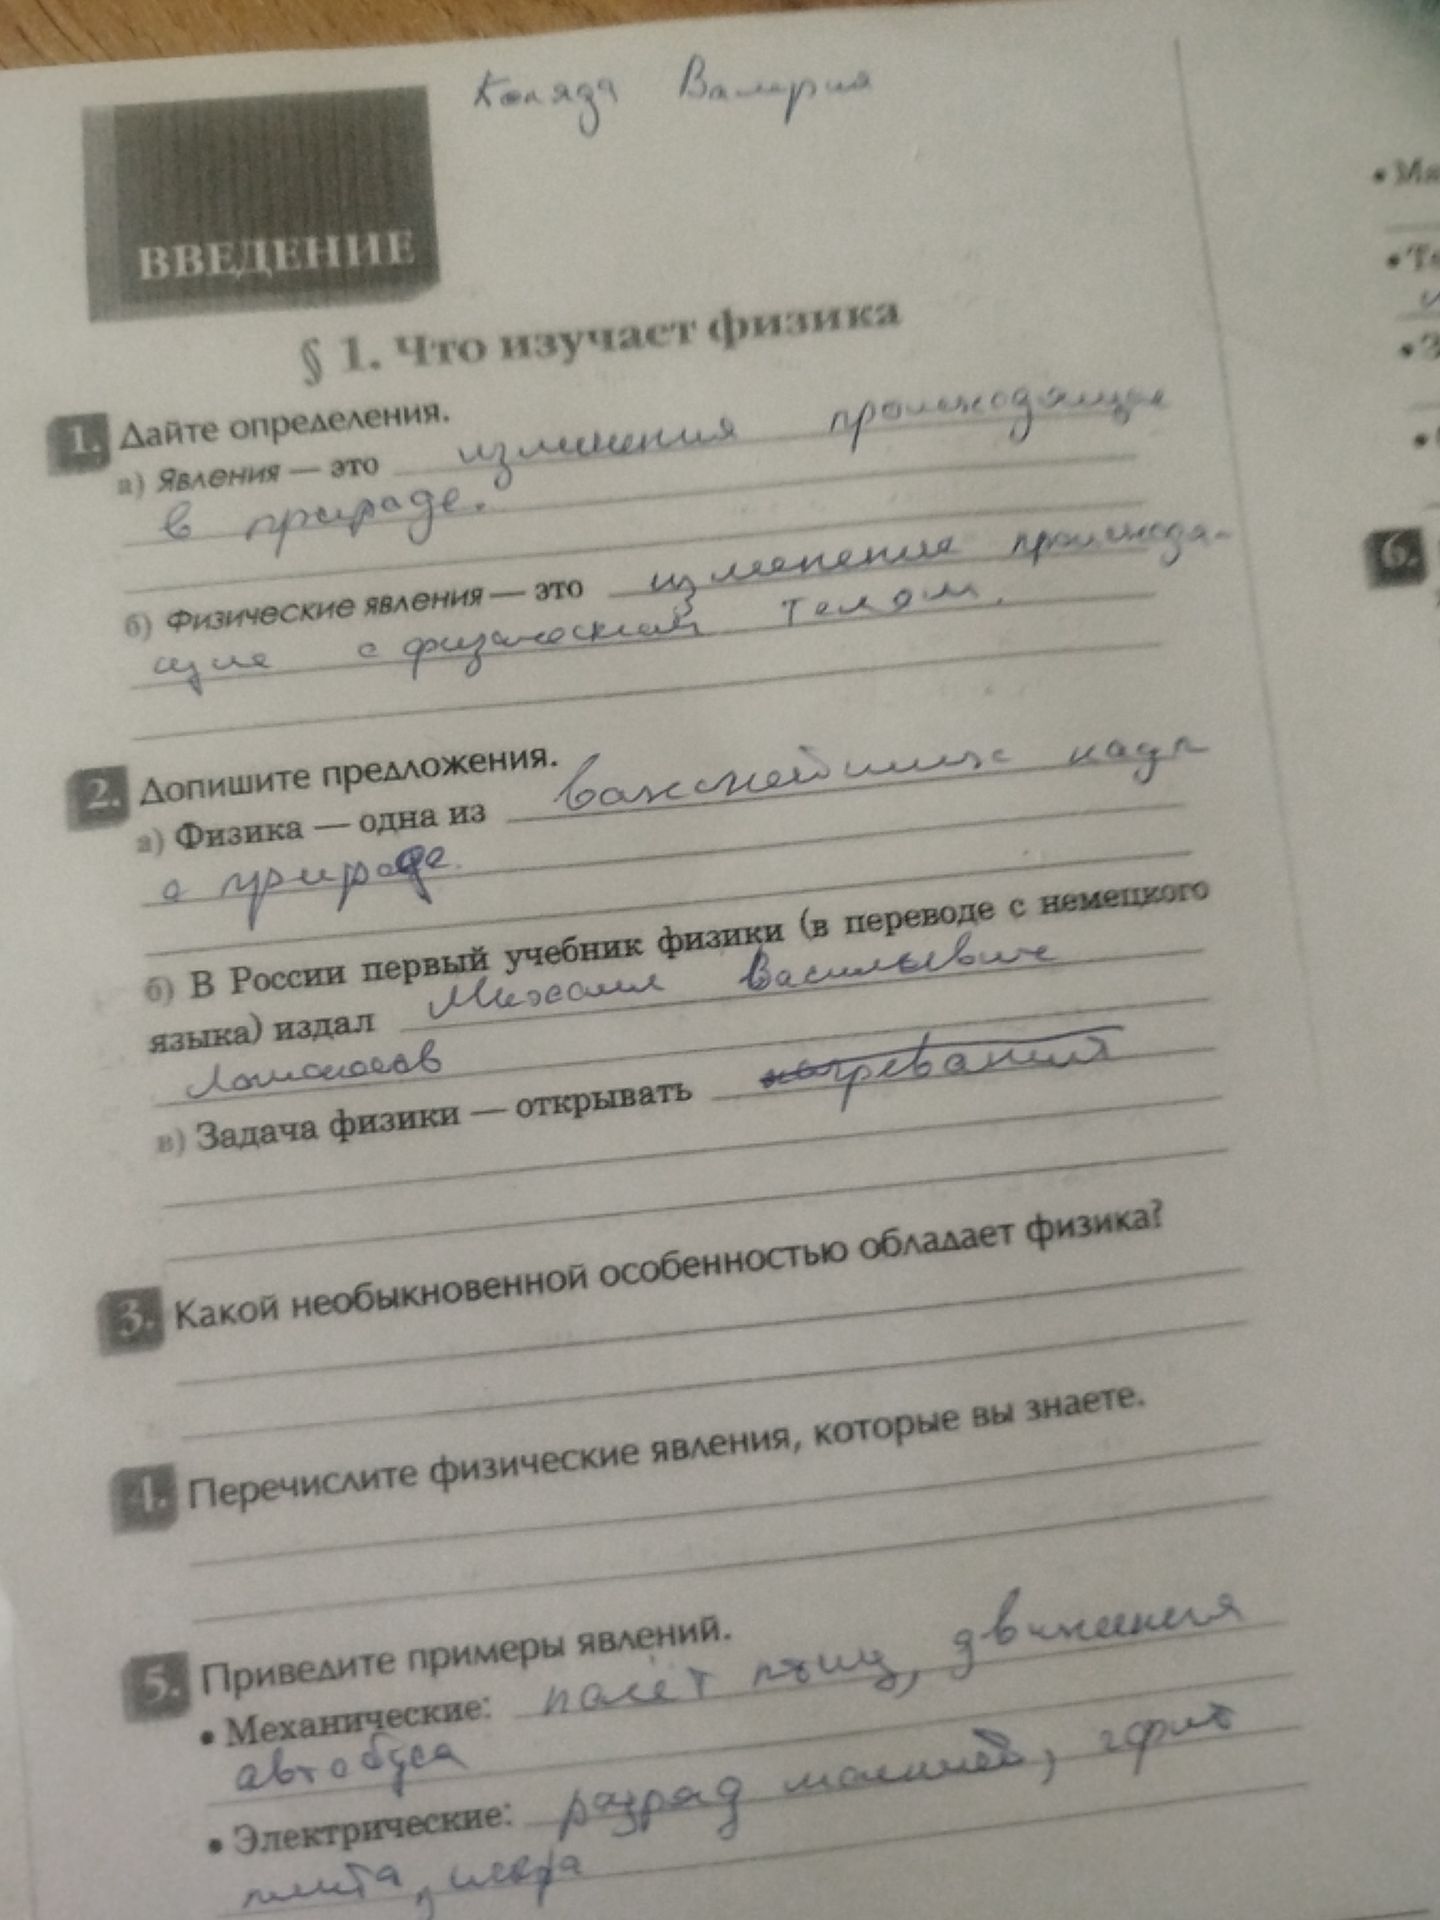 Коляда Валерия
ВВЕДЕНИЕ
§ 1. Что изучает физика
1. Дайте определения.
а) Явления — это изменения происходящие
в природе.
б) Физические явления — это изменение происходя-
щие с физическим телом.
2. Допишите предложения.
а) Физика — одна из важнейших наук
о природе.
б) В России первый учебник физики (в переводе с немецкого
языка) издал Михаил Васильевич
Ломоносов
в) Задача физики — открывать
3. Какой необыкновенной особенностью обладает физика?
4. Перечислите физические явления, которые вы знаете.
5. Приведите примеры явлений.
• Механические: полёт птиц, движения
автобуса
• Электрические: разряд молний,
плита, искра
• Те
• З
6.